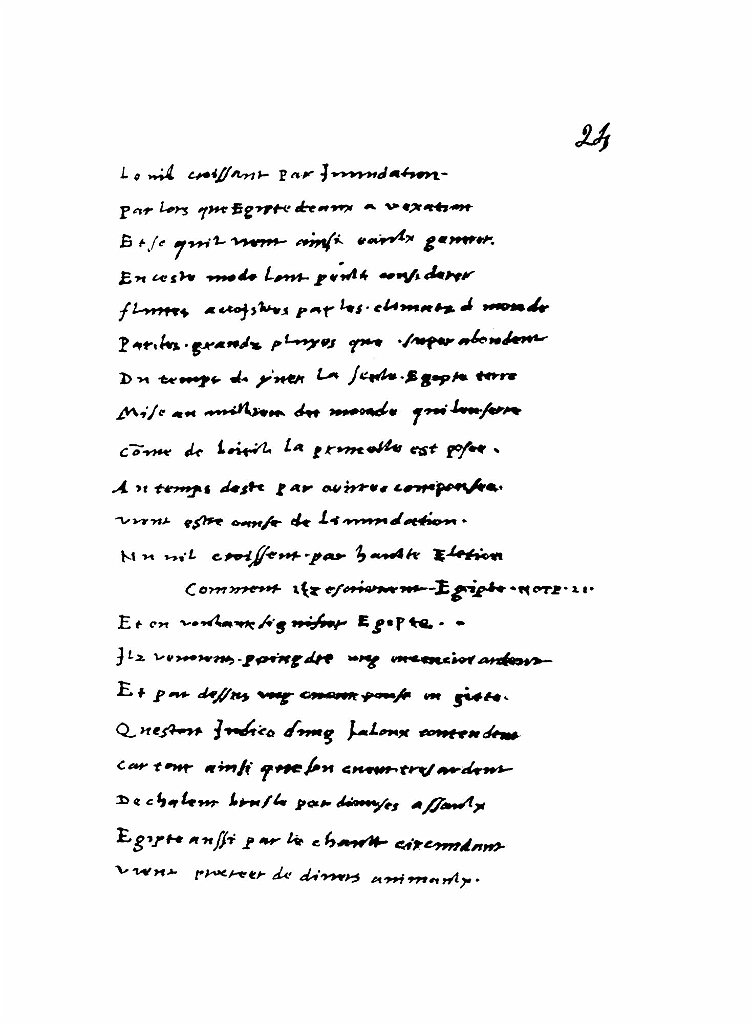 24
Le nil croissant par Inundation
par lors que Egipte deaux a vexation
Et se quil vient ainsi
En ceste mode lont peult considerer
fluves accroistres par les climatz d monde
Par les grandz pluyes que superabondent
Du temps de yver La seule Egipte terre
Mise au millieu du monde qui lenserre
Cōme de loieil la prunelle est posee.
Au temps deste par
vient estre cause de linundation.
Au nil croissent par haulte
Comment ilz escrivoient Egipte NOTE 21.
Et en voullant signifier Egipte.
Ilz venoient poingdre ung encencier ardent
Et par dessus ung cueur en gicte.
Questoit Indice dung Jaloux contendent
Car tout ainsi que son cueur tresardent
De chaleur brusle par divuses assaulx
Egipte aussi par le chault circundant
vient procreer de divers animaulx.